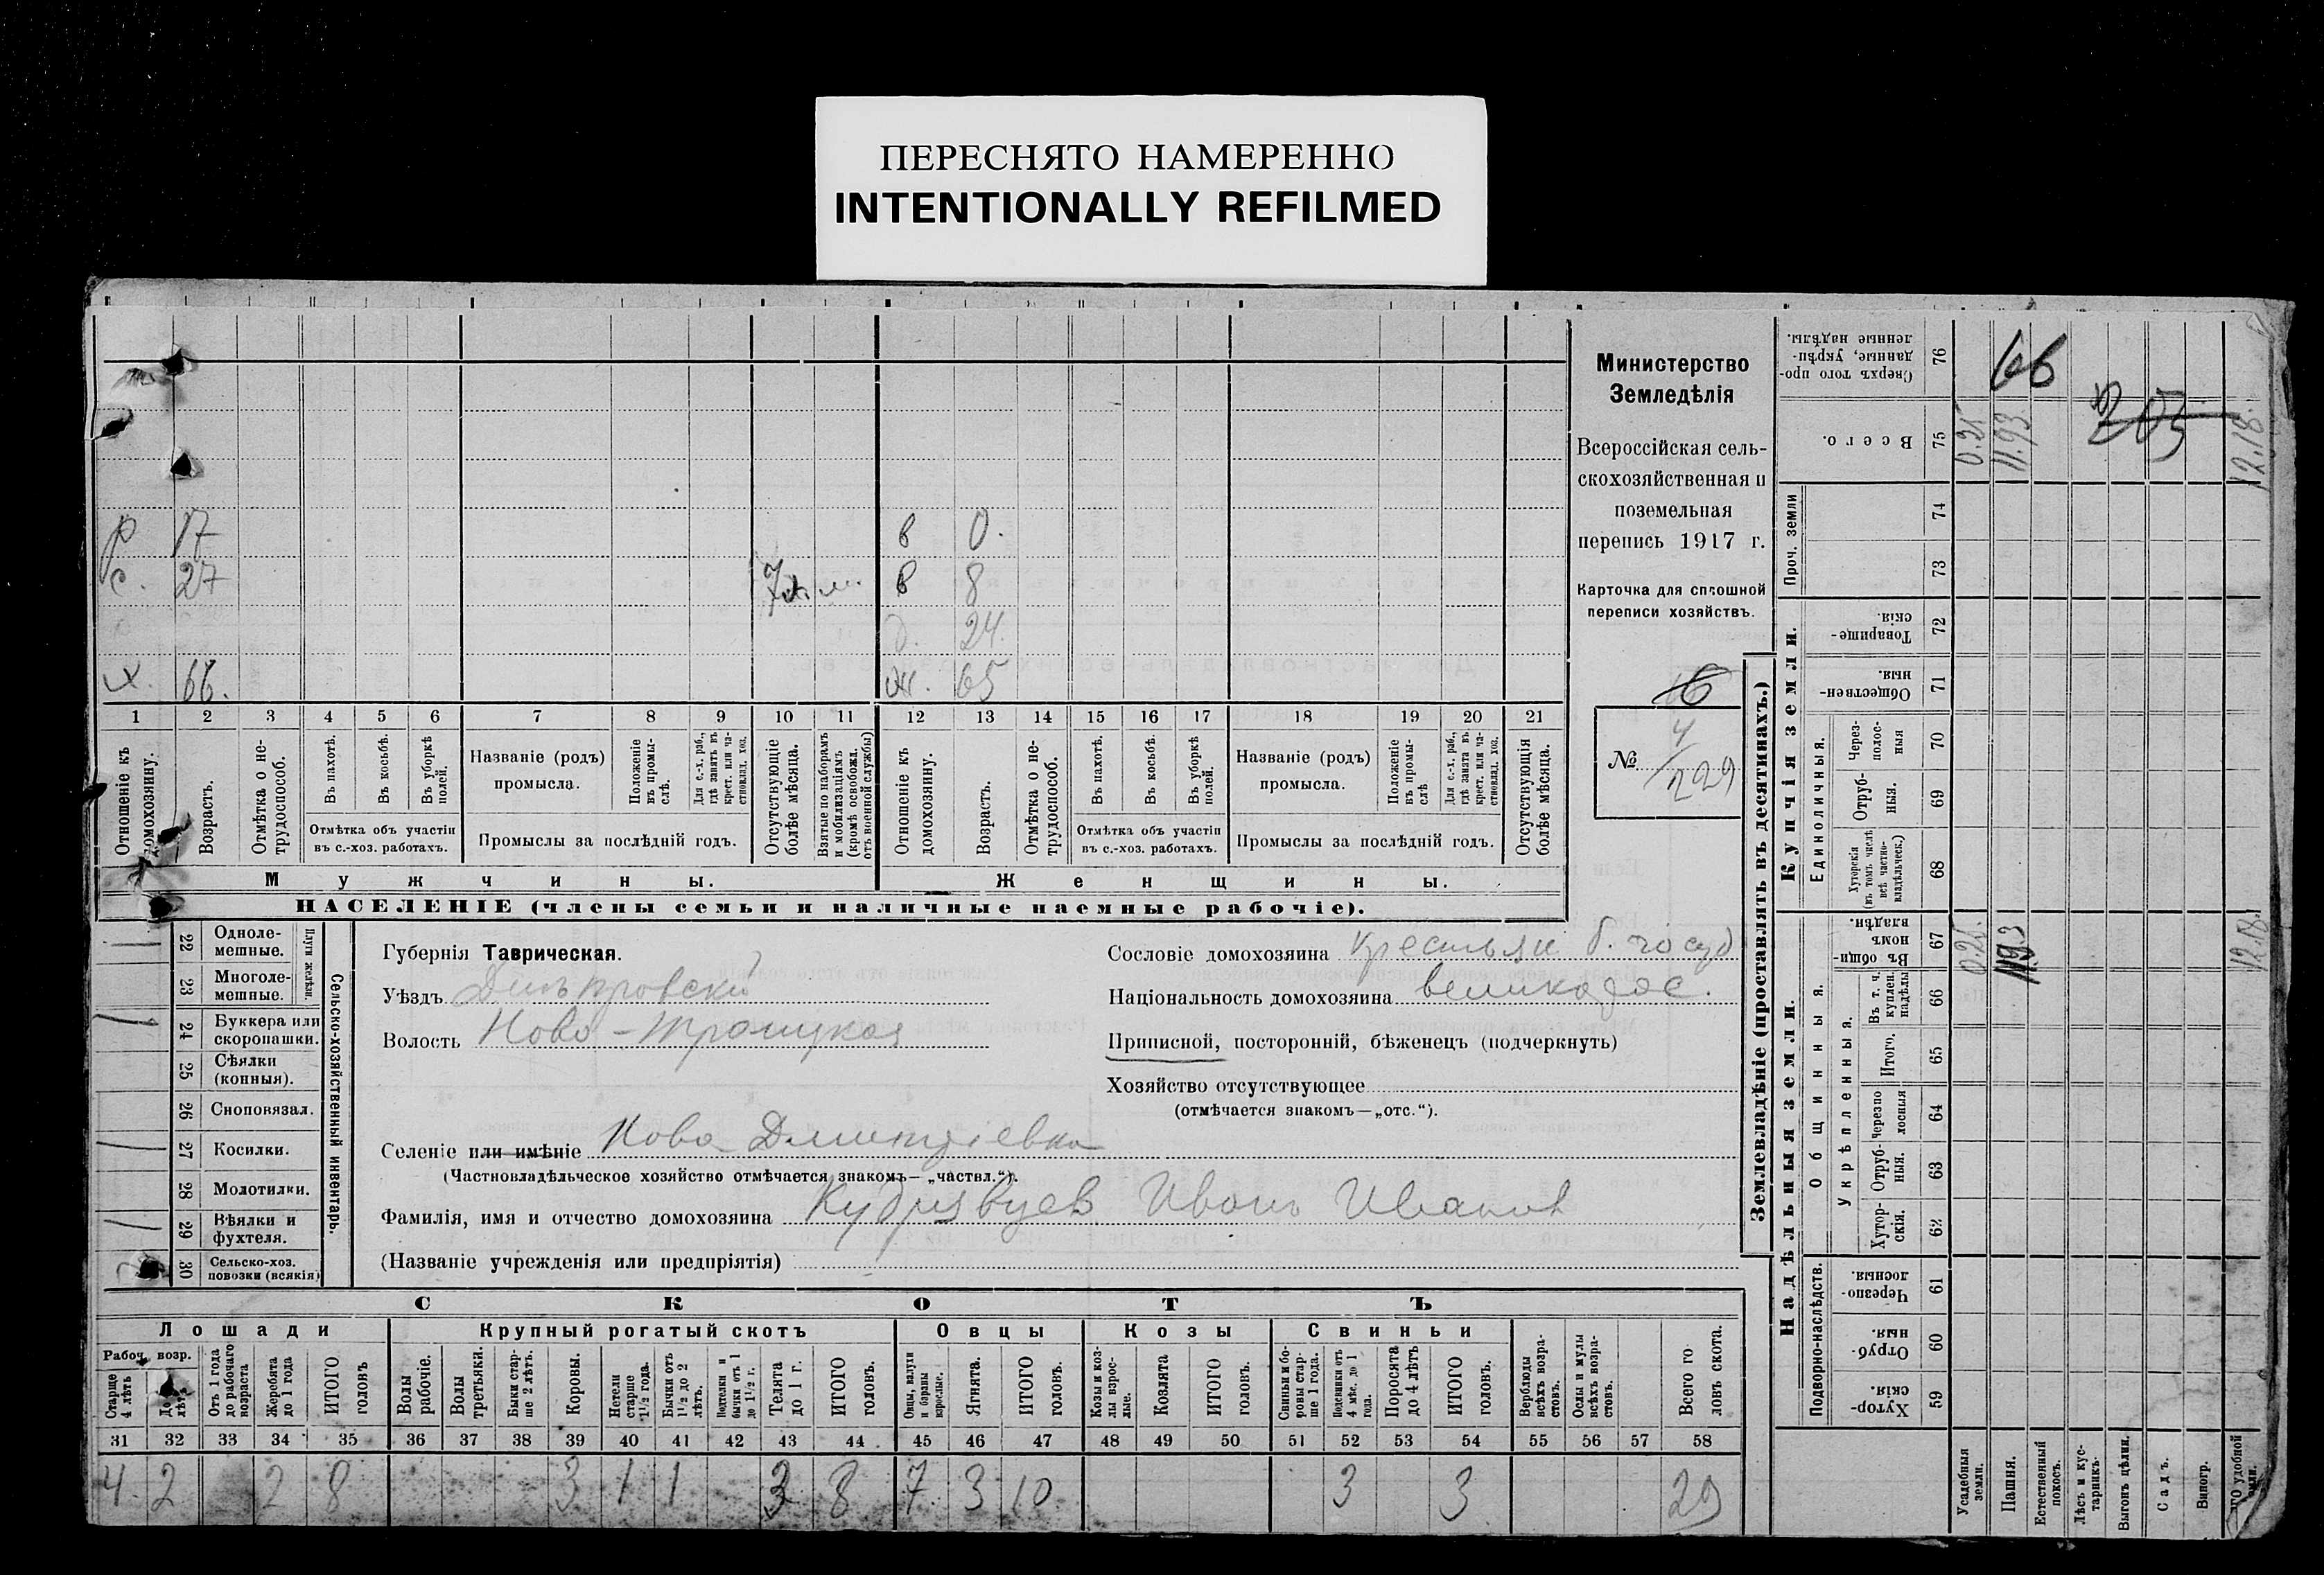 ПЕРЕСНЯТО НАМЕРЕННО
INTENTIONALLY REFILMED
Министерство
Земледѣлія
Всероссійская сель-
скохозяйственная и
поземельная
перепись 1917 г.
Карточка для сплошной
переписи хозяйствъ.
16
№ 4/229
р 17 в 0.
с. 27 в 8
д. 24.
х. 66. ж. 65
1 2 3 4 5 6 7 8 9 10 11 12 13 14 15 16 17 18 19 20 21
Отношеніе къ домохозяину.
Возрастъ.
Отмѣтка о не-трудоспособ.
Въ пахотѣ.
Въ косьбѣ.
Въ уборкѣ полей.
Отмѣтка объ участіи
въ с.-хоз. работахъ.
Названіе (родъ)
промысла.
Положеніе въ промы-слѣ.
Для с.-х. раб., гдѣ занятъ въ крест. или ча-стновлад. хоз.
Промыслы за послѣдній годъ.
Отсутствующіе болѣе мѣсяца.
Взятые по наборамъ и мобилизаціямъ (кромѣ освобожд. отъ военной службы)
Отношеніе къ домохозяину.
Возрастъ.
Отмѣтка о не-трудоспособ.
Въ пахотѣ.
Въ косьбѣ.
Въ уборкѣ полей.
Отмѣтка объ участіи
въ с.-хоз. работахъ.
Названіе (родъ)
промысла.
Положеніе въ промы-слѣ
Для с.-х. раб., гдѣ занята въ крест. или ча-стновлад. хоз.
Промыслы за послѣдній годъ.
Отсутствующія болѣе мѣсяца.
Мужчины. Женщины.
НАСЕЛЕНІЕ (члены семьи и наличные наемные рабочіе).
22 Одноле-мешные.
23 Многоле-мешные.
Плуги желѣзн.
24 Буккера или скоропашки.
25 Сѣялки (конныя).
26 Сноповязал.
27 Косилки.
28 Молотилки.
29 Вѣялки и фухтеля.
30 Сельско-хоз. повозки (всякія)
Сельско-хозяйственный инвентарь.
Губернія Таврическая.
Уѣздъ Днѣпровскій
Волость Ново-Троицкая
Селеніе или имѣніе Ново Дмитріевка
(Частновладѣльческое хозяйство отмѣчается знакомъ— „частвл.“).
Фамилія, имя и отчество домохозяина Кудрявцев Иванъ Иванов
(Названіе учрежденія или предпріятія)
Сословіе домохозяина крестьян б. госуд
Національность домохозяина великорос.
Приписной, посторонній, бѣженецъ (подчеркнуть)
Хозяйство отсутствующее
(отмѣчается знакомъ—„отс.“).
СКОТЪ
Лошади Крупный рогатый скотъ Овцы Козы Свиньи
Рабоч. возр.
Старше 4 лѣтъ
Отъ 1 года до рабочаго возраста
Жеребята до 1 года
ИТОГО головъ
Волы рабочіе.
Волы третьяки.
Быки стар-ше 2 лѣтъ.
Коровы.
Нетели старше 1½ года.
Бычки отъ 1½ до 2 лѣтъ.
Подтелки и бычки отъ 1 до 1½ г.
Телята до 1 г.
ИТОГО головъ.
Овцы, валухи и бараны взрослые.
Ягнята.
ИТОГО головъ.
Козы и коз-лы взрос-лые.
Козлята
ИТОГО головъ.
Свиньи и бо-ровы стар-ше 1 года.
Подсвинки отъ 4 мѣс. до 1 года.
Поросята до 4 лѣтъ
ИТОГО головъ.
Верблюды всѣхъ возра-стовъ.
Ослы и мулы всѣхъ возра-стовъ.
Всего го-ловъ скота.
31 32 33 34 35 36 37 38 39 40 41 42 43 44 45 46 47 48 49 50 51 52 53 54 55 56 57 58
4 2 2 8 3 1 1 3 8 7 3 10 3 3 29
Землевладѣніе (проставлять въ десятинахъ.)
Надѣльныя земли. Купчія земли.
Подворно-наслѣдств.
Общинныя.
Укрѣпленныя.
Единоличныя.
Проч. земли
Хутор-скія 59
Отруб-ныя. 60
Черезпо-лосныя. 61
Хутор-скія. 62
Отруб-ныя. 63
Черезпо лосныя 64
Итого. 65
Въ т. ч. куплен. надѣлы 66
Въ общи-номъ владѣн. 67
Хуторскія (въ томъ числѣ всѣ частно-владѣльческ.) 68
Отруб-ныя. 69
Через-полос-ныя 70
Обществен-ныя 71
Товарище-скія. 72
73
74
Всего. 75
Сверхъ того про-данные, укрѣп-ленные надѣлы. 76
Усадебныя земли. 0.25 0.25
Пашня. 11.93 11.93
Естественный покосъ.
Лѣсъ и кус-тарникъ.
Выгонъ цѣлин.
Садъ.
Виногр.
12.18. 12.18.
205